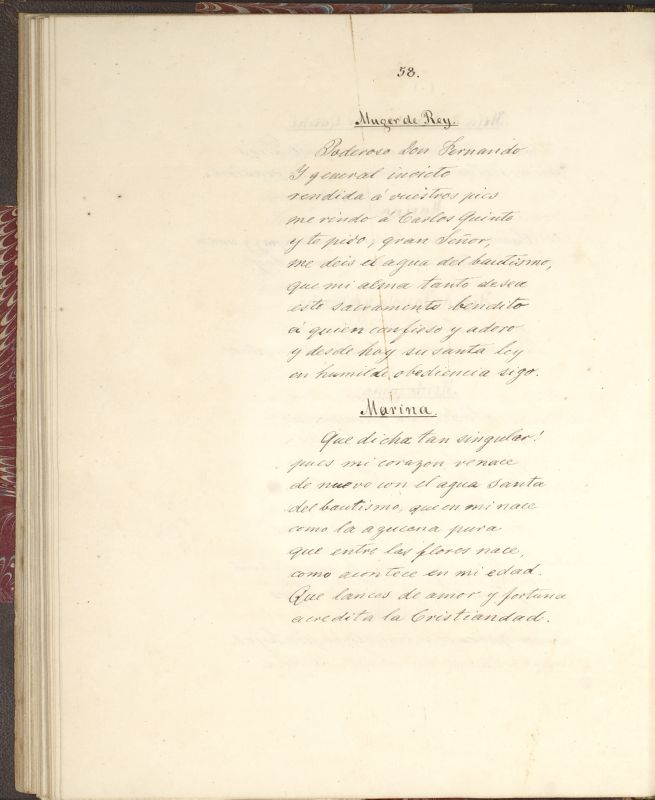 58.
Muger de Rey.
Poderoso Don Fernando
Y general invicto
rendida á vuestros pies
me rindo á Carlos Quinto
y te pido, gran Señor,
me deis el agua del bautismo,
que mi alma tanto desea
este sacramento bendito
á quien confieso y adoro
y desde hoy su santa ley
en humilde obediencia sigo.
Marina.
Que dicha tan singular!
pues mi corazon renace
de nuevo con el agua santa
del bautismo, que en mi nace
como la azucena pura
que entre las flores nace,
como acontece en mi edad.
Que lances de amor y fortuna
acredita la Cristiandad.